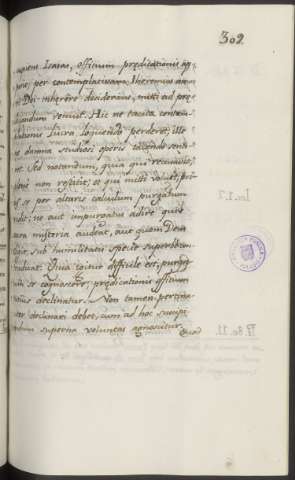 302
cupiens Isaias, officium predicationis ap-
petit; per contemplativam Hieremias amo-
ri Dei inherere desiderans, mitti ad pre-
dicandum renuit. Hic ne tacita contem-
plationis lucra loquendo perderet; ille
ne damna studiosi operis tacendo senti-
ret. Sed notandum, quia qui recusavit,
plene non restitit; et qui mitti voluit, pri-
us se per altaris calculum purgatum
vidit; ne aut impurgatus adire quis
sacra misteria audeat, aut quem
sub humilitatis specie superbe con-
tradicat. Quia igitur difficile est, purga-
tum se cognoscere; predicationis officium
tutius declinatur. Non tamen pertina-
citer declinari debet, cum ad hoc susci-
piendum superna voluntas agnoscitur.
Quod